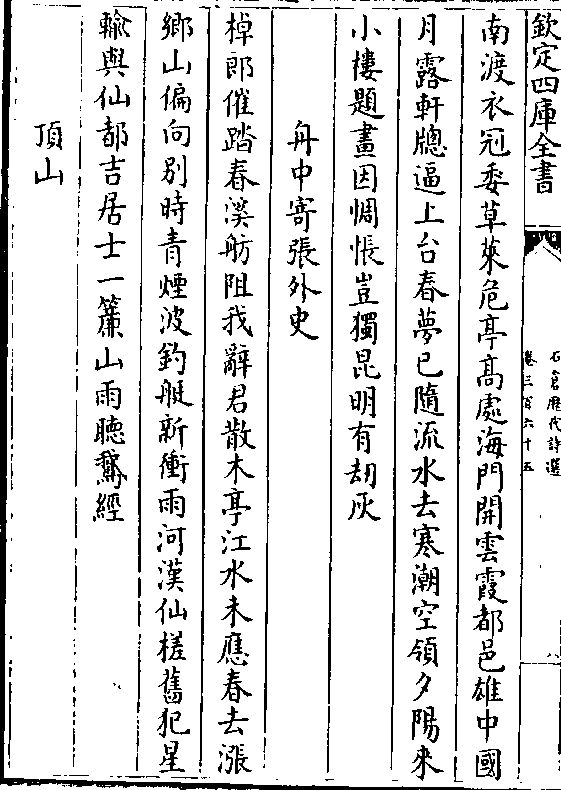 欽定四庫全書
石倉歷代詩選
卷三百六十五
八
南渡衣冠委草萊危亭髙處海門開雲霞都邑雄中國
月露軒牎逼上台春夢已隨流水去寒潮空領夕陽來
小樓題畫因惆悵豈獨昆明有刼灰
舟中寄張外史
棹郎催踏春溪舫阻我辭君散木亭江水未應春去漲
鄉山偏向别時青煙波釣艇新衝雨河漢仙槎舊犯星
輸與仙都吉居士一簾山雨聽鵝經
頂山